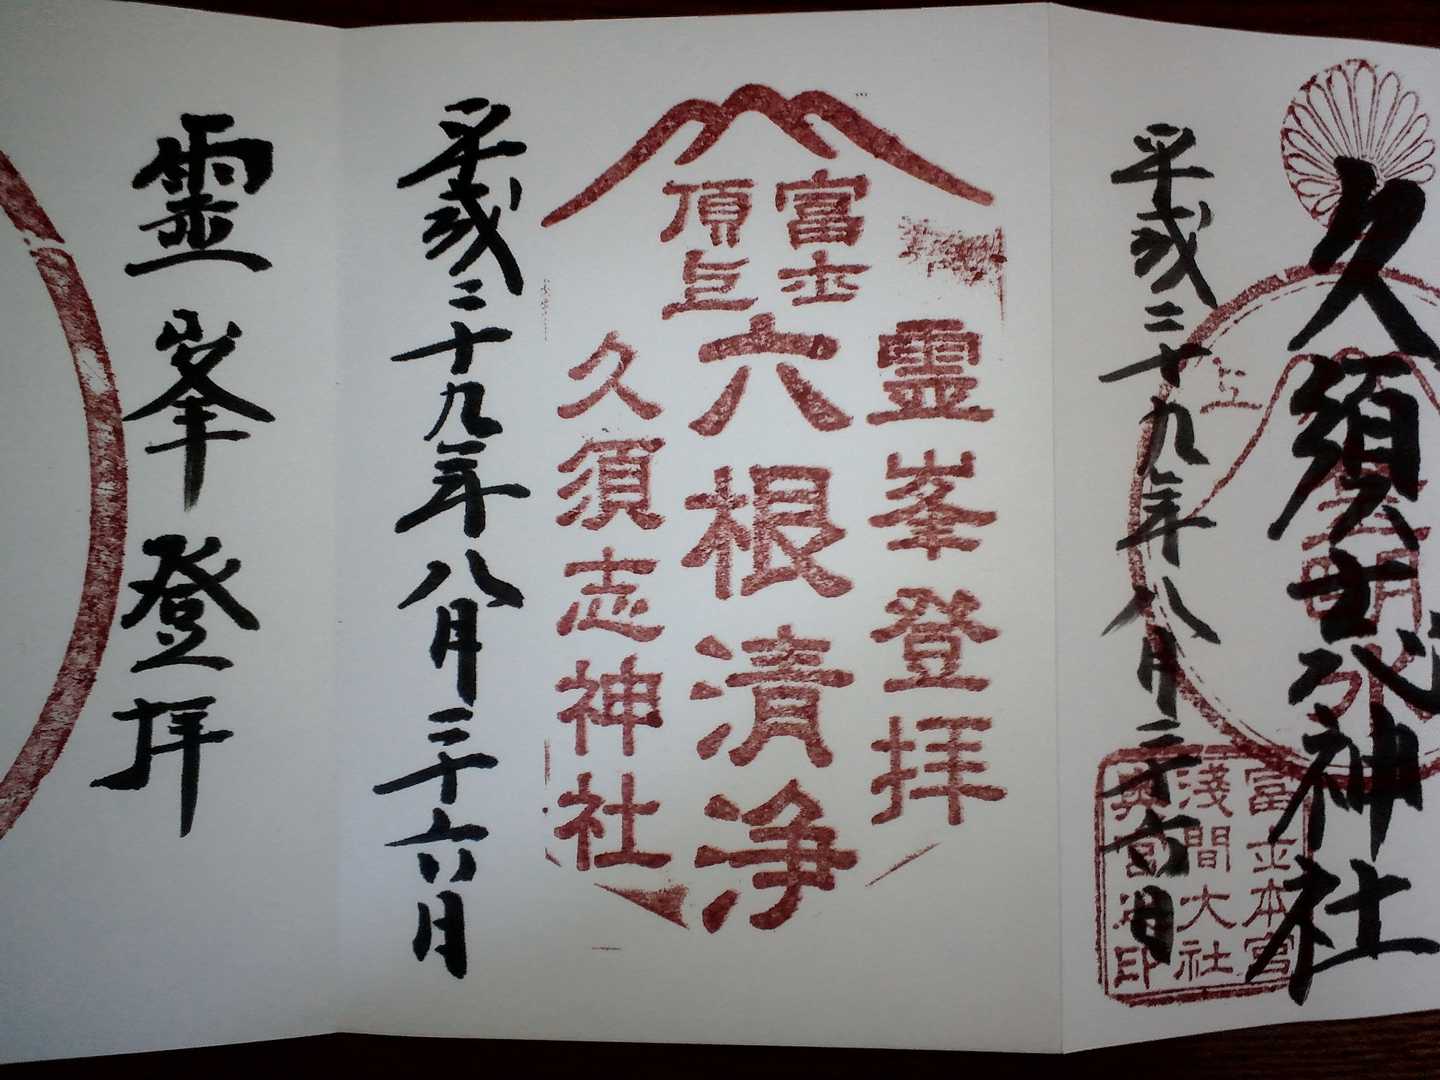 久須志神社
平成二十九年八月二十六日
富士本宮
淺間大社
奥宮
印
霊峯登拝
富士
頂上
六根清浄
久須志神社
平成二十九年八月二十六日
霊峯登拝